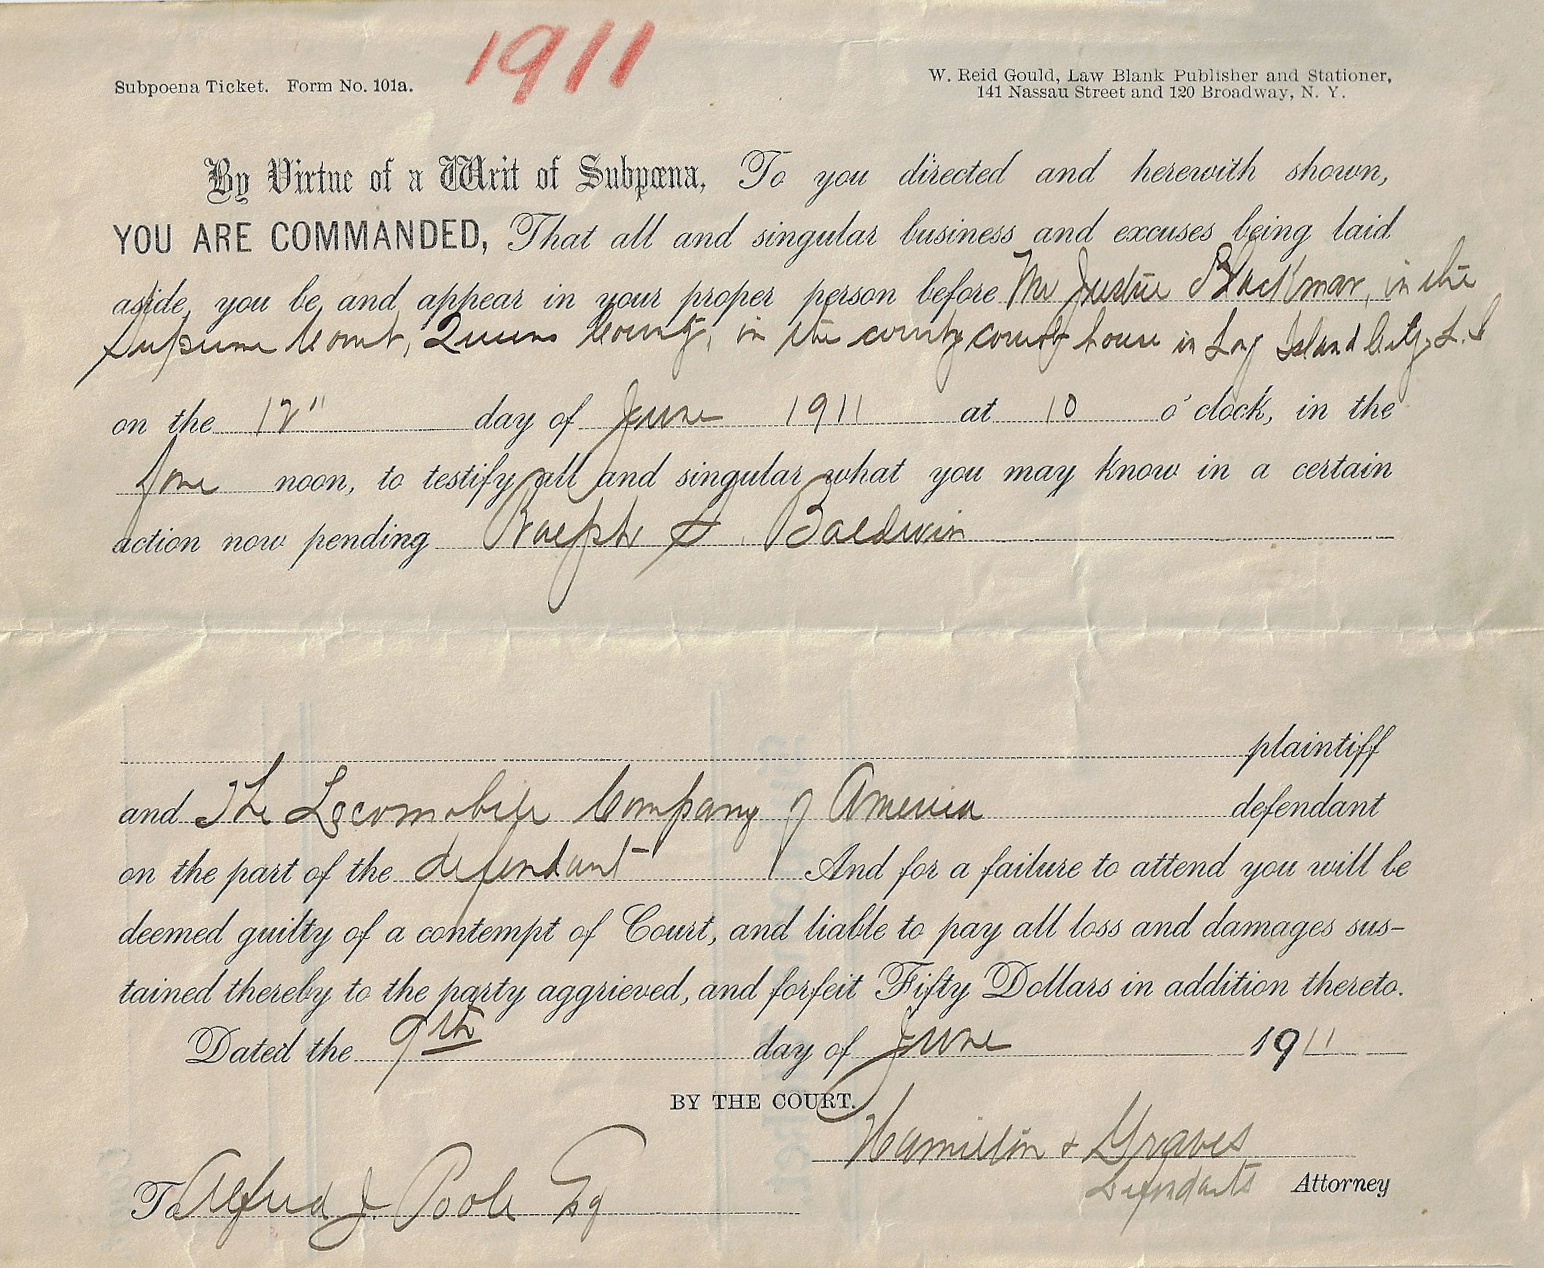 1911
Subpoena Ticket. Form No. 101a.
W. Reid Gould, Law Blank Publisher and Stationer,
141 Nassau Street and 120 Broadway, N. Y.
By Virtue of a Writ of Subpœna, To you directed and herewith shown,
YOU ARE COMMANDED, That all and singular business and excuses being laid
aside, you be, and appear in your proper person before Mr Justice Blackmar, in the
Supreme Court, Queens County, in the county court house in Long Island City, L. I
on the 12" day of June 1911 at 10 o'clock, in the
fore noon, to testify all and singular what you may know in a certain
action now pending Ralph S. Baldwin
plaintiff
and The Locomobile Company of America defendant
on the part of the defendant And for a failure to attend you will be
deemed guilty of a contempt of Court, and liable to pay all loss and damages sus-
tained thereby to the party aggrieved, and forfeit Fifty Dollars in addition thereto.
Dated the 9th day of June 1911
BY THE COURT.
Hamilton & Graves
Defendants Attorney
To Alfred J. Poole Esq